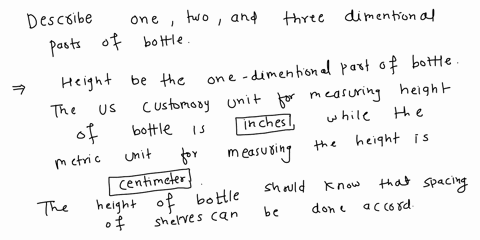 Describe one, two, and three dimentional
parts of bottle.
⇒ Height be the one-dimentional part of bottle.
The US Customory unit for measuring height
of bottle is inches, while the
metric unit for measuring the height is
centimeter.
The height of bottle should know that spacing
of shelves can be done accord.